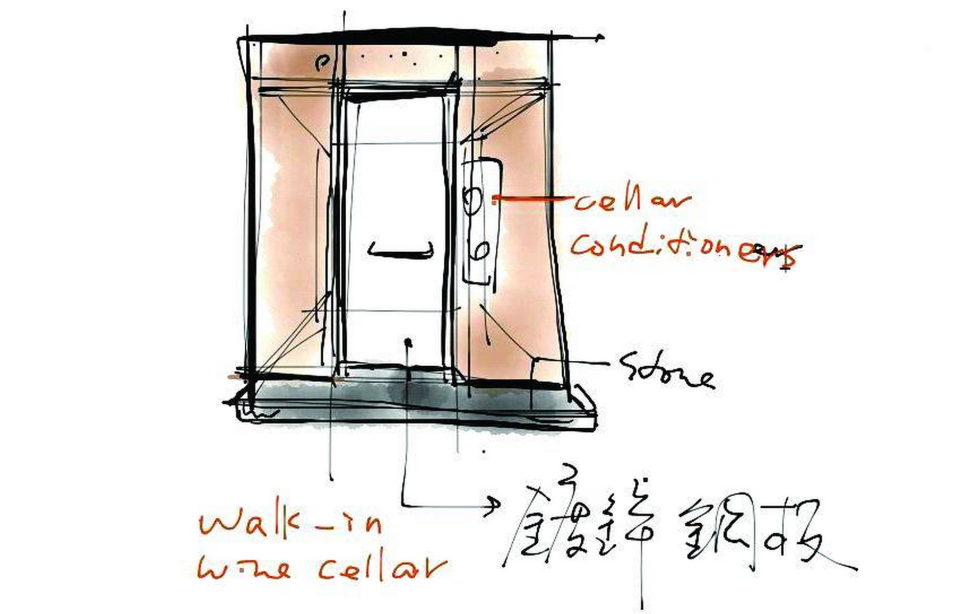 cellar
conditioners
Stone
鍍鋅鋼板
Walk-in
wine cellar